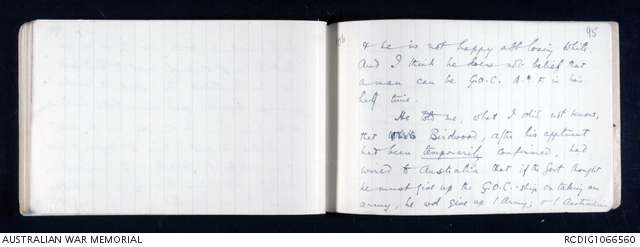 95
& he is not happy abt losing White
And I think he does not belief that
a man can be G.O.C. A.I.F. in his
half time.
He told me, what I did not know,
that Birdwood, after his apptmt
had been temporarily confirmed, had
wired to Australia that if the Govt thought
he must give up the G.O.C.-ship on taking an
army, he wd give up / Army; & / Australian
AUSTRALIAN WAR MEMORIAL
RCDIG1066560